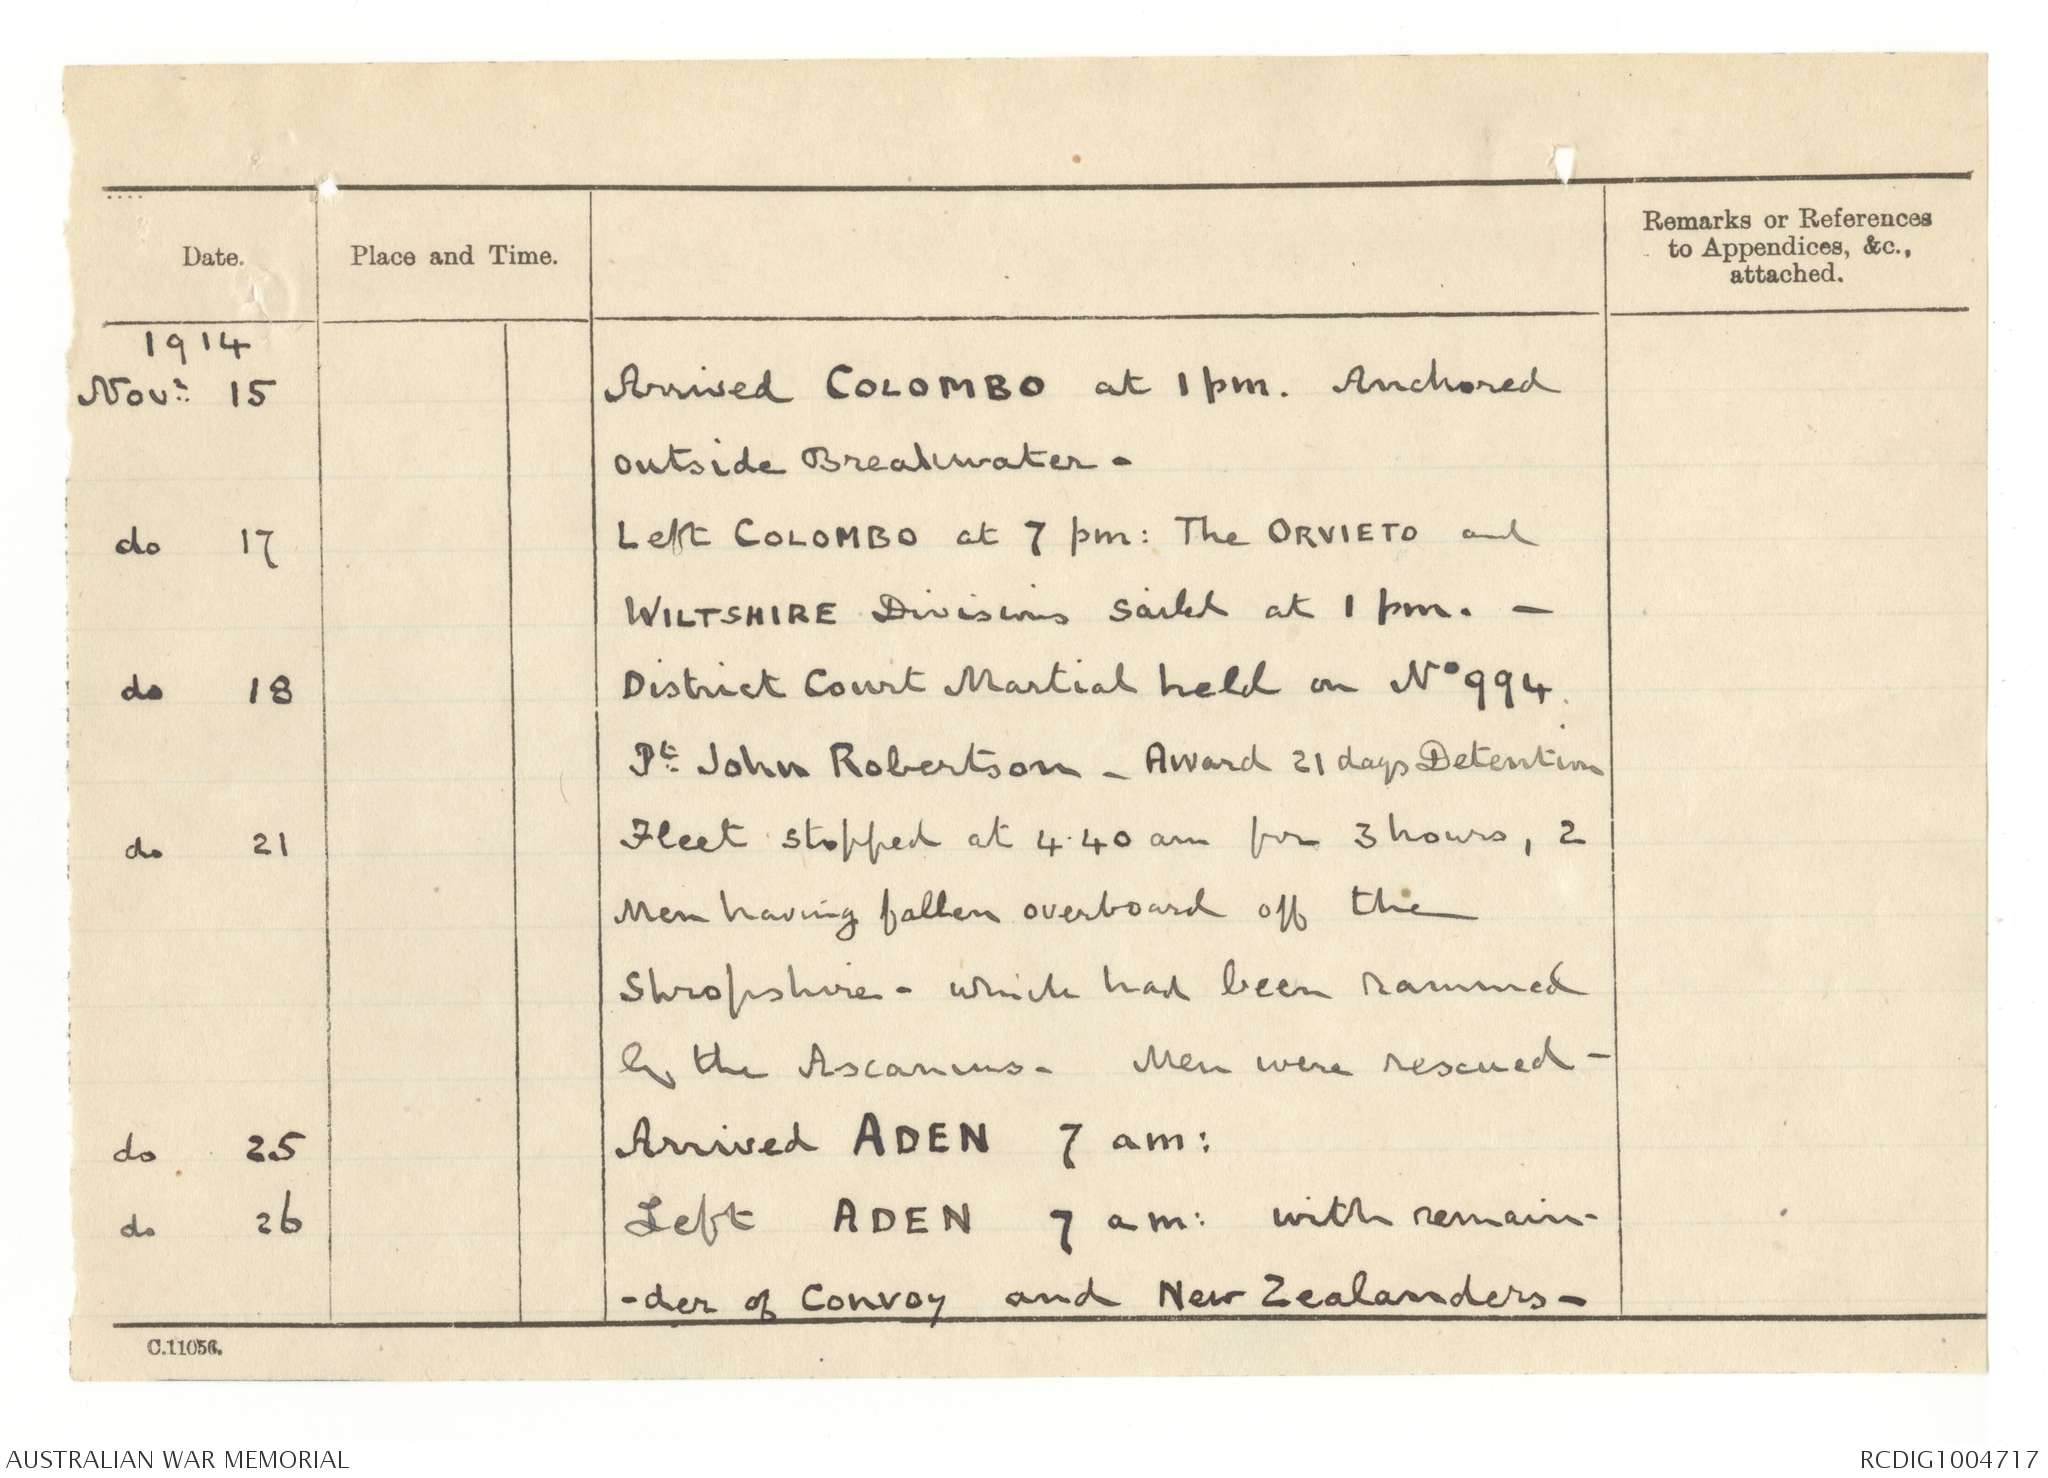 Date.
Place and Time.
Remarks or References
to Appendices, &c.,
attached.
1914
Novr: 15 Arrived COLOMBO at 1 pm. Anchored
outside Breakwater -
do 17 Left COLOMBO at 7 pm: The ORVIETO and
WILTSHIRE Divisions sailed at 1 pm. -
do 18 District Court Martial held on No 994.
Pt: John Robertson - Award 21 days Detention
do 21 Fleet stopped at 4.40 am for 3 hours, 2
Men having fallen overboard off the
Shropshire - which had been rammed
by the Ascanius - Men were rescued -
do 25 Arrived ADEN 7 am:
do 26 Left ADEN 7 am: with remain-
-der of Convoy and New Zealanders -
C.11056.
AUSTRALIAN WAR MEMORIAL
RCDIG1004717